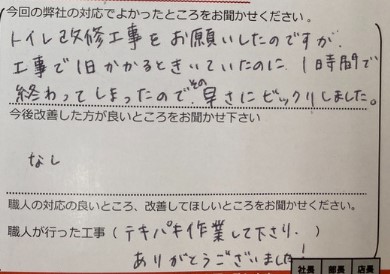 今回の弊社の対応でよかったところをお聞かせください。
トイレ改修工事をお願いしたのですが、
工事で1日かかるときいていたのに、1時間で
終わってしまったので、その早さにビックリしました。
今後改善した方が良いところをお聞かせ下さい
なし
職人の対応の良いところ、改善してほしいところをお聞かせください。
職人が行った工事(テキパキ作業して下さり、
ありがとうございました!
社長 部長 店長